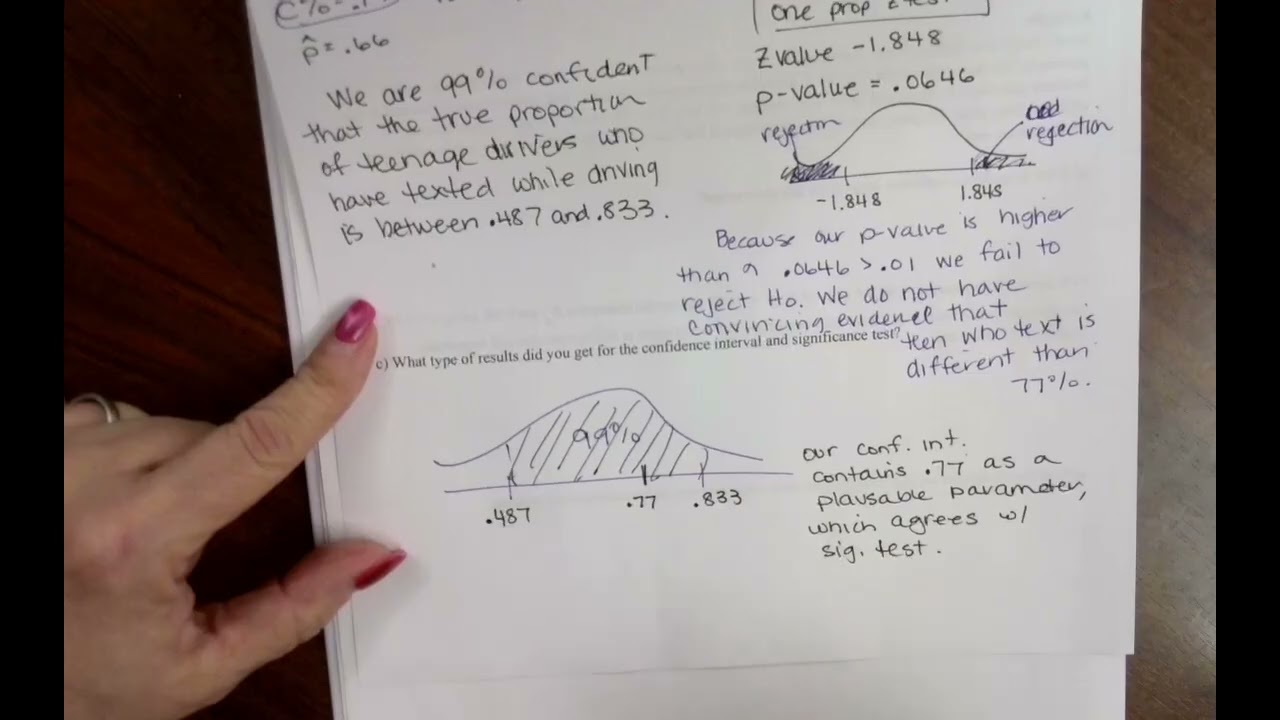 C%
p̂ = .66
We are 99% confident
that the true proportion
of teenage drivers who
have texted while driving
is between .487 and .833.
one prop z test
Z value -1.848
p-value = .0646
rejection
rejection
-1.848
1.848
Because our p-value is higher
than a .0646 > .01 we fail to
reject Ho. We do not have
convinicing evidence that
teen who text is
different than
77%.
c) What type of results did you get for the confidence interval and significance test?
99%
.487
.77
.833
our conf. int.
contains .77 as a
plausable parameter,
which agrees w/
sig. test.